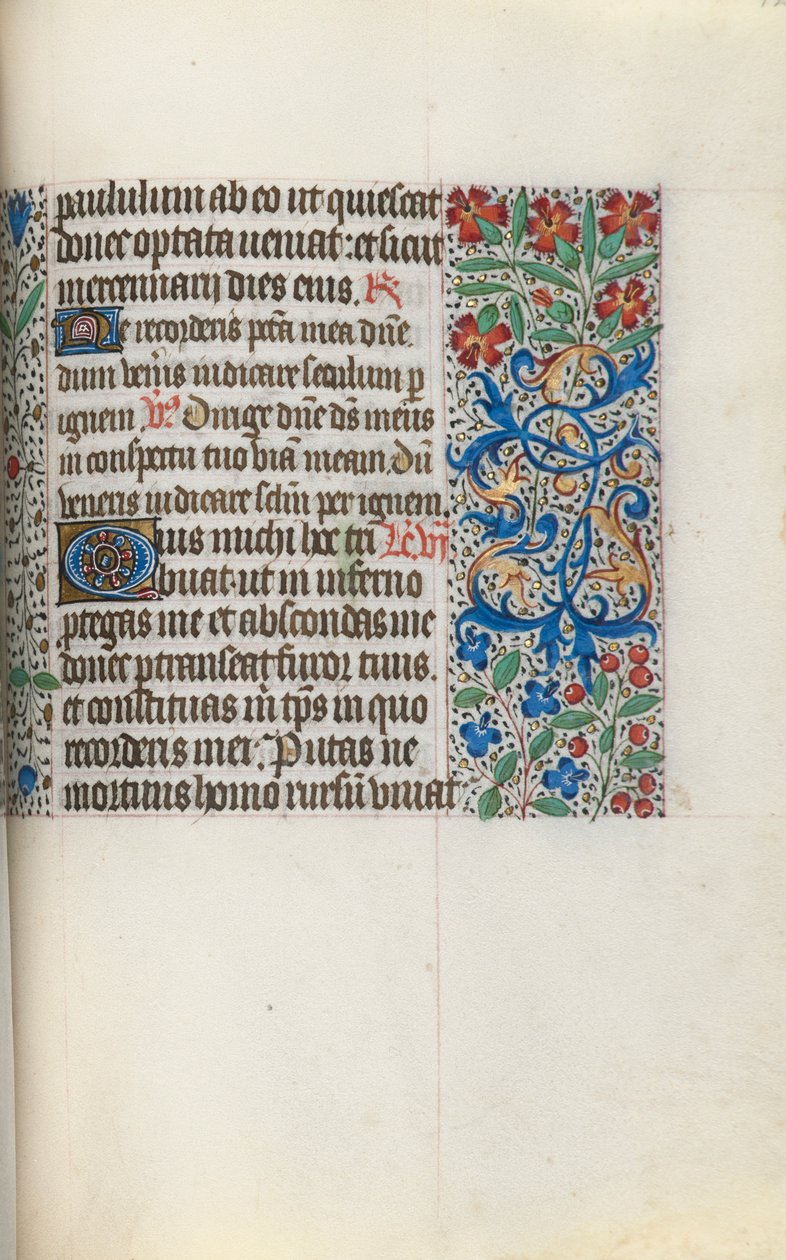 paululum ab eo ut quiescat
donec optata ueniat: et sicut
mercennarij dies eius. R̃
Ne recorderis pctã mea dñe.
dum veñis iudicare seculum p
ignem V̾ Dirige dñe ds meus
in conspectu tuo viã meam. Dũ
veneris iudicare sclm̃ per ignem.
Quis michi hoc tri Lc̃. vij.
buat. ut in inferno
ptegas me et abscondas me
donec ptranseat furor tuus.
et constituas m̃ tp̃s in quo
recorderis mei: Putas ne
mortuus homo rursũ viuat